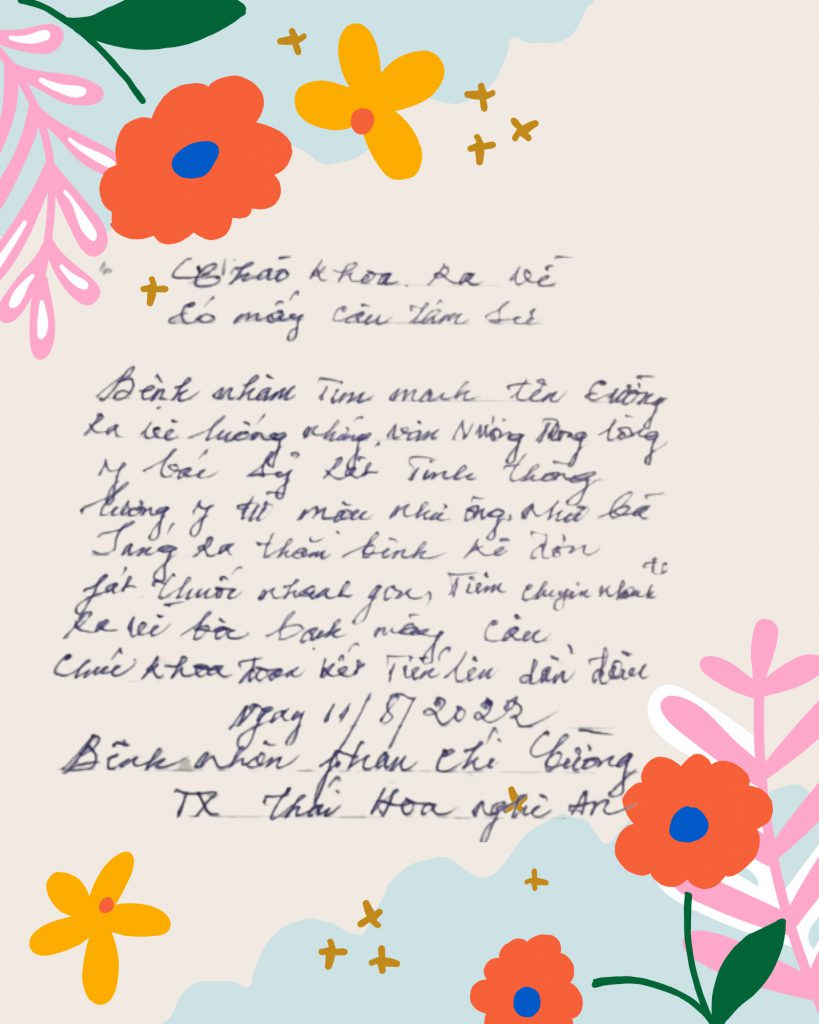 Chào khoa ra về
Có mấy câu tâm sự
Bệnh nhâm Tim mach tên Cường
Ra về luống nhúng, vấn Nương Tong lòng
Y bác sỹ Rất Tinh thông
Lương y từ mẫu như ông, như bà
Sáng ra thăm bệnh kê đơn
fát thuốc nhanh gọn, Tiêm chuyền nhanh
Ra về bà mấy câu
Chúc khoa Toàn kết Tiến lên dẫn đầu
Ngay 11/8/2022
Bênh nhân phan chí Cường
TX Thái Hoa nghê An